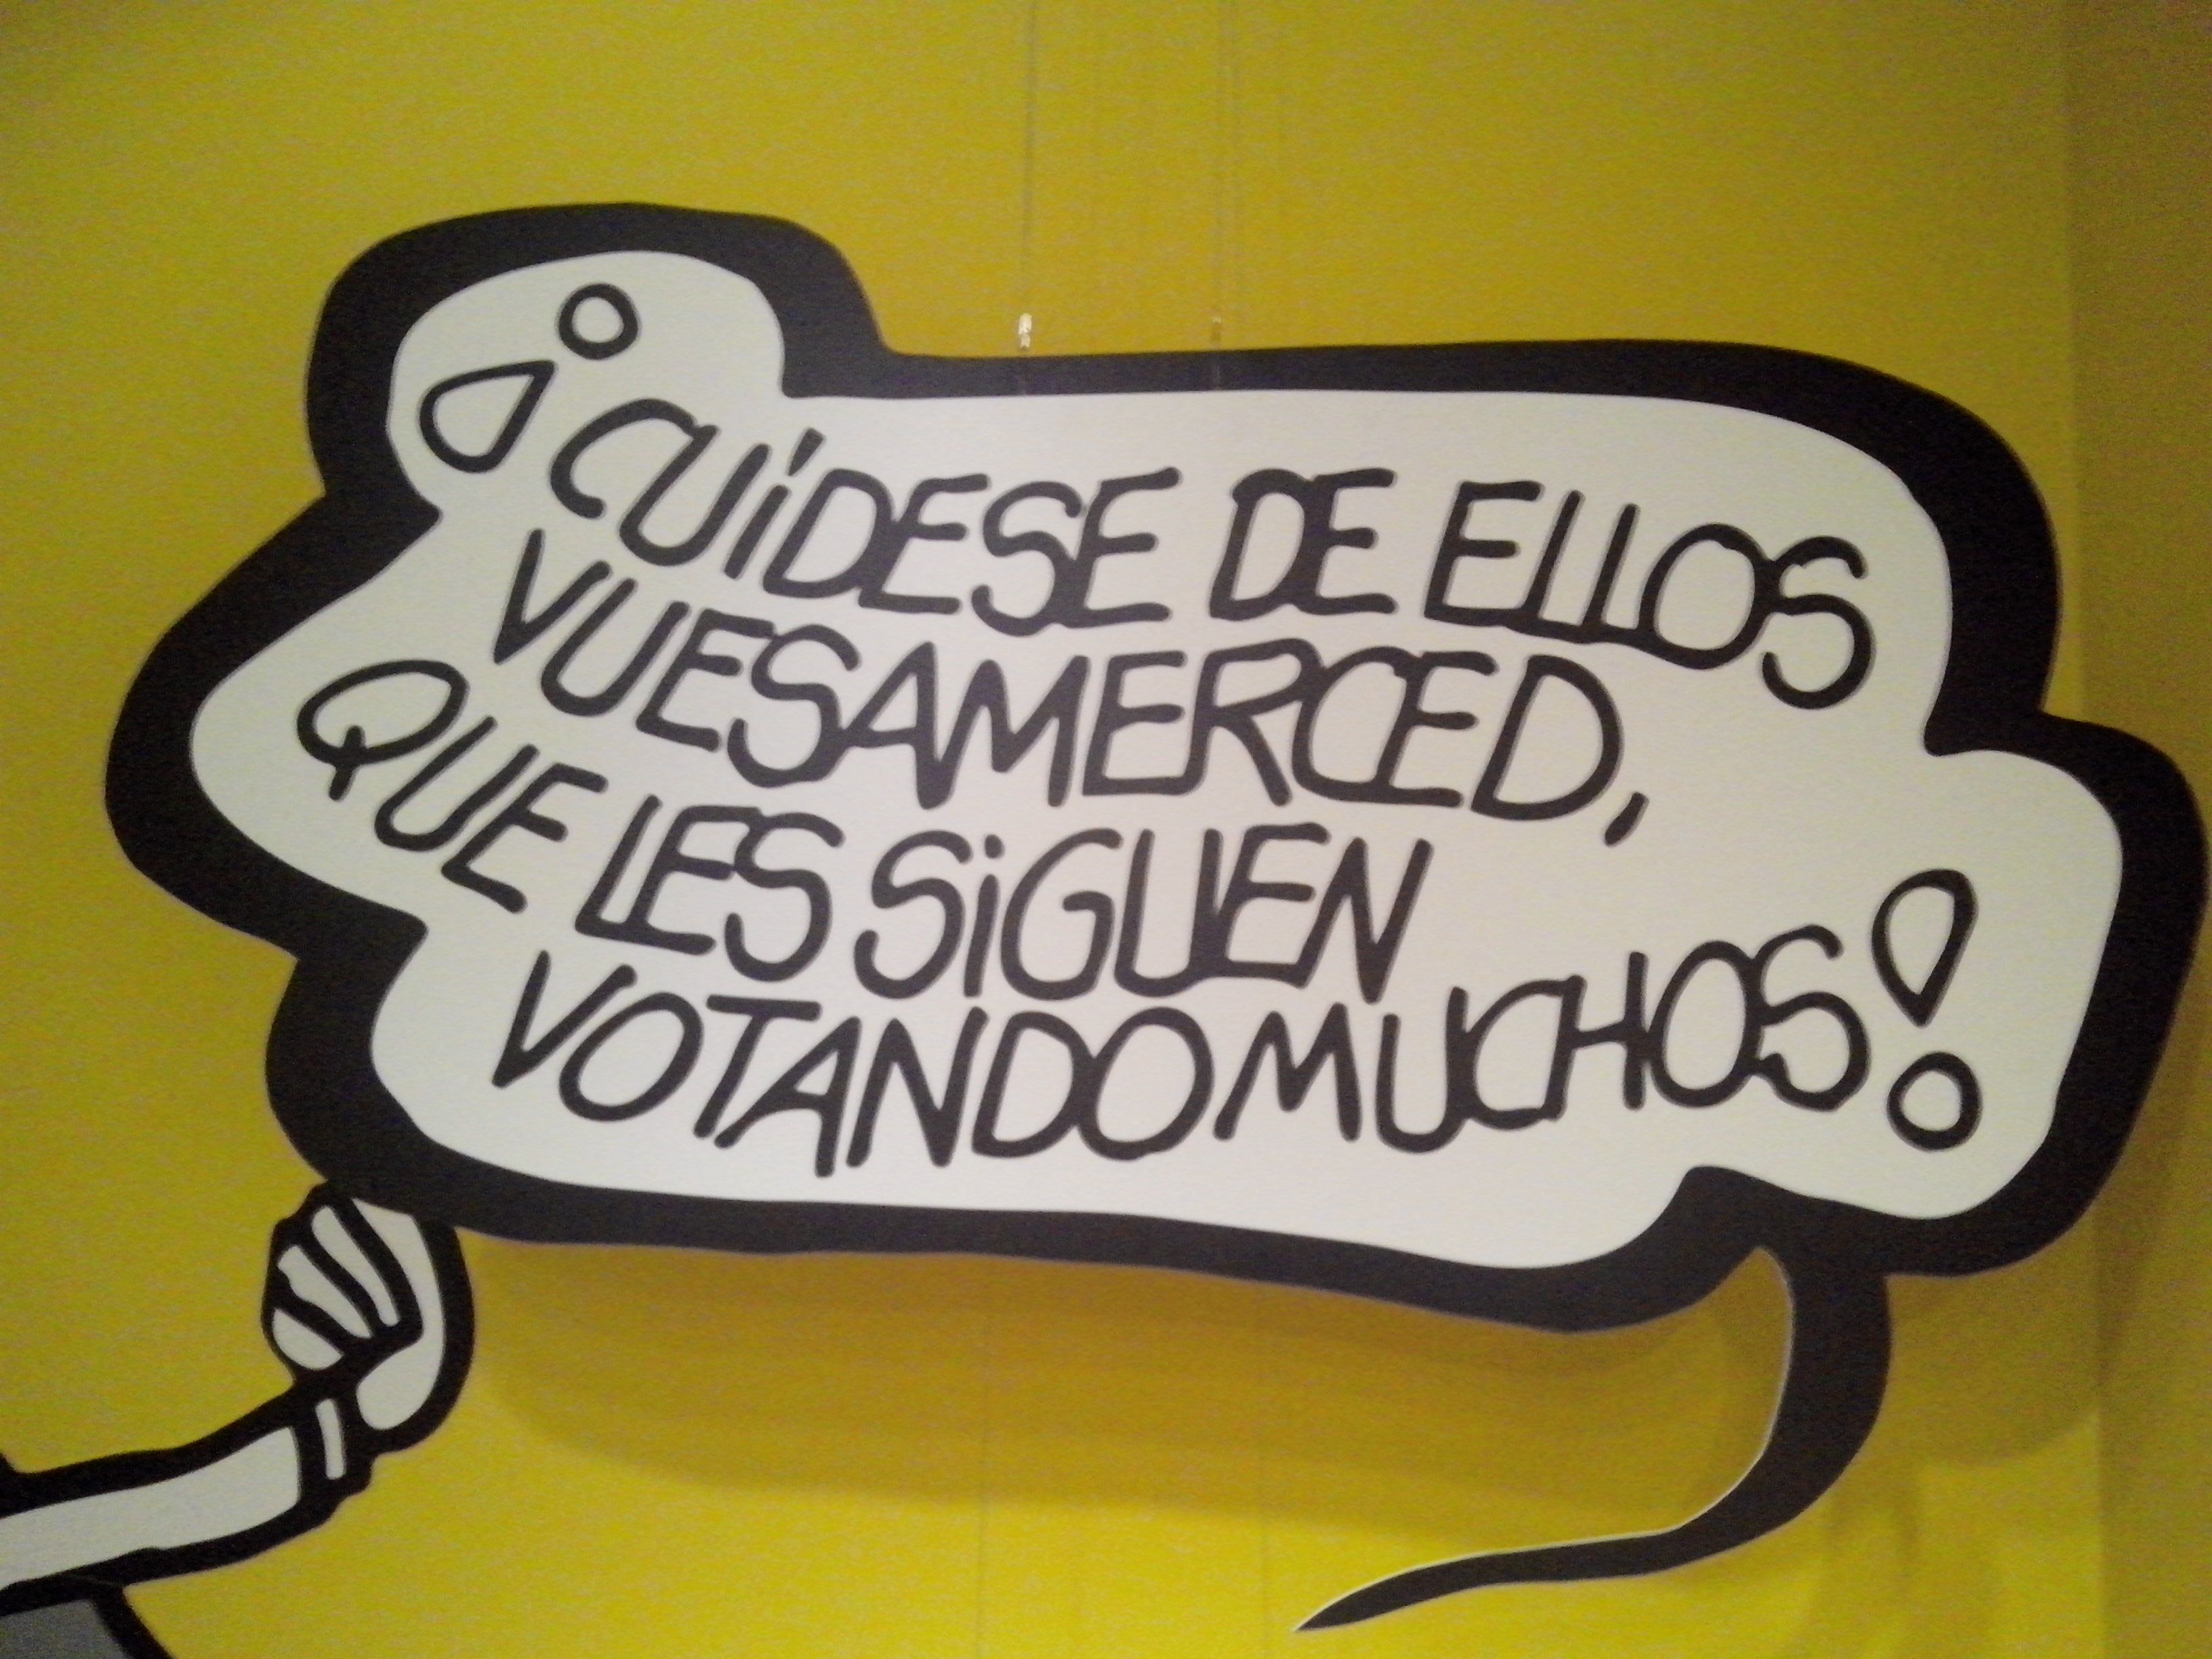 ¡CUÍDESE DE ELLOS
VUESAMERCED,
QUE LES SIGUEN
VOTANDO MUCHOS!